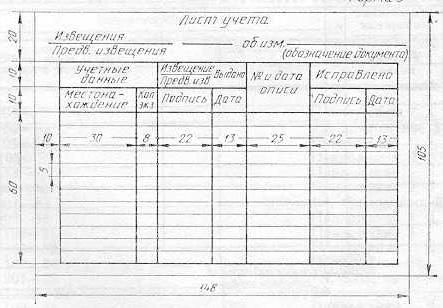 Форма 3
Лист учета
Извещения
Предв. извещения
об изм.
(обозначение документа)
Учетные данные
Извещение
Предв. изв.
Выдано
№ и дата описи
Исправлено
Местона-
хождение
Кол
экз
Подпись
Дата
Подпись
Дата
10
30
8
22
13
25
22
13
5
20
10
10
60
105
148